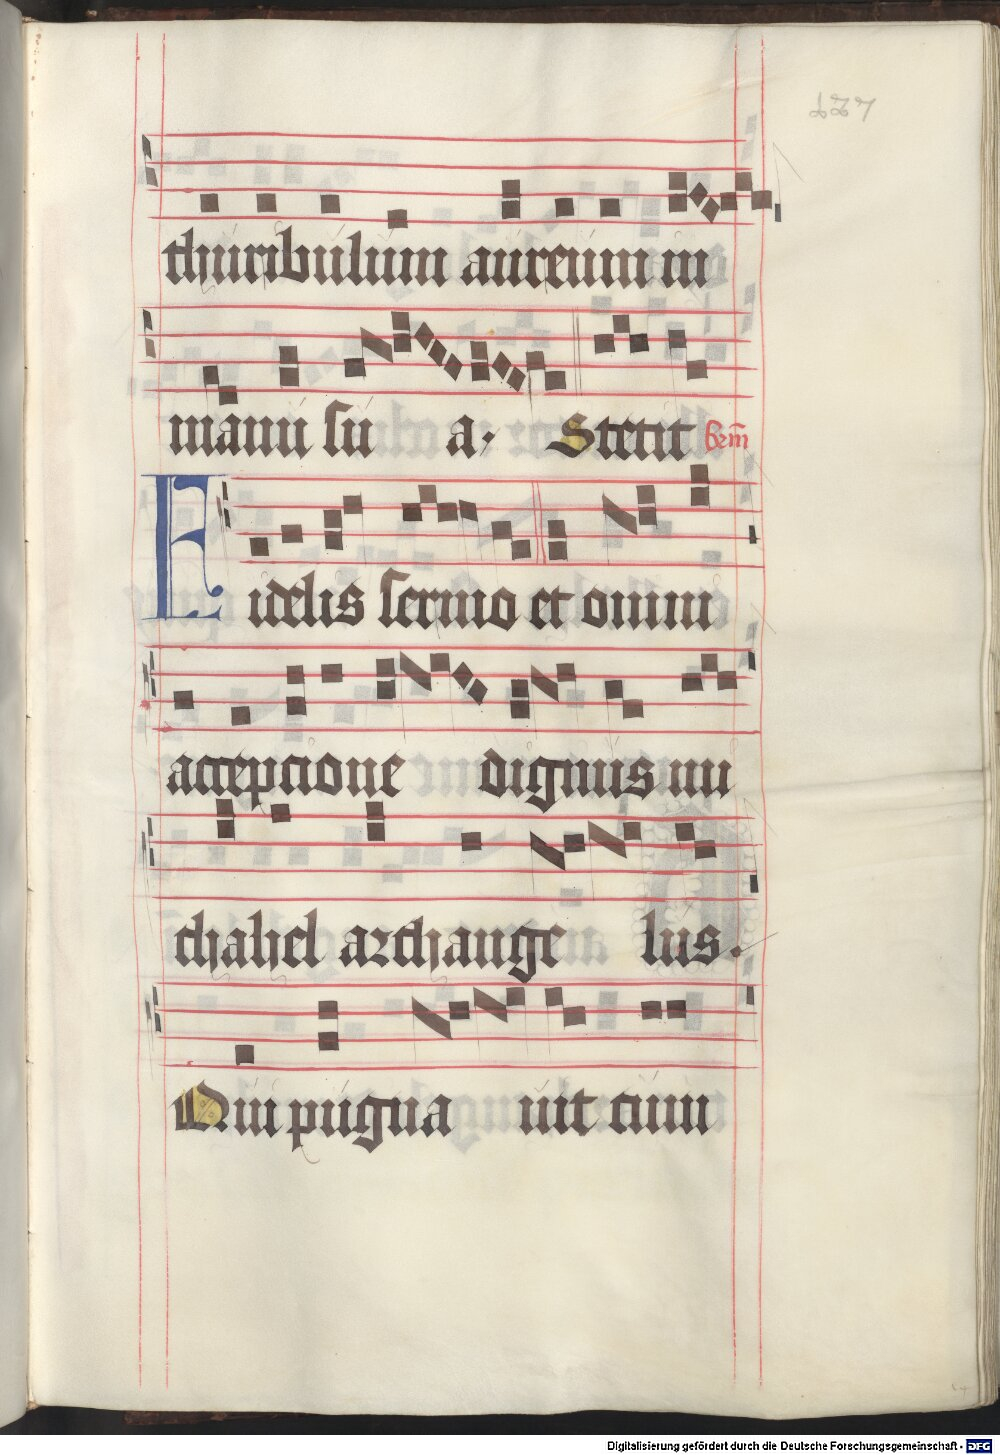 127
thuribulum aureum in
manu su a. Stetit
Fidelis sermo et omni
acceptione dignus mi
chahel archange lus.
Qui pugna uit cum
Digitalisierung gefördert durch die Deutsche Forschungsgemeinschaft - DFG